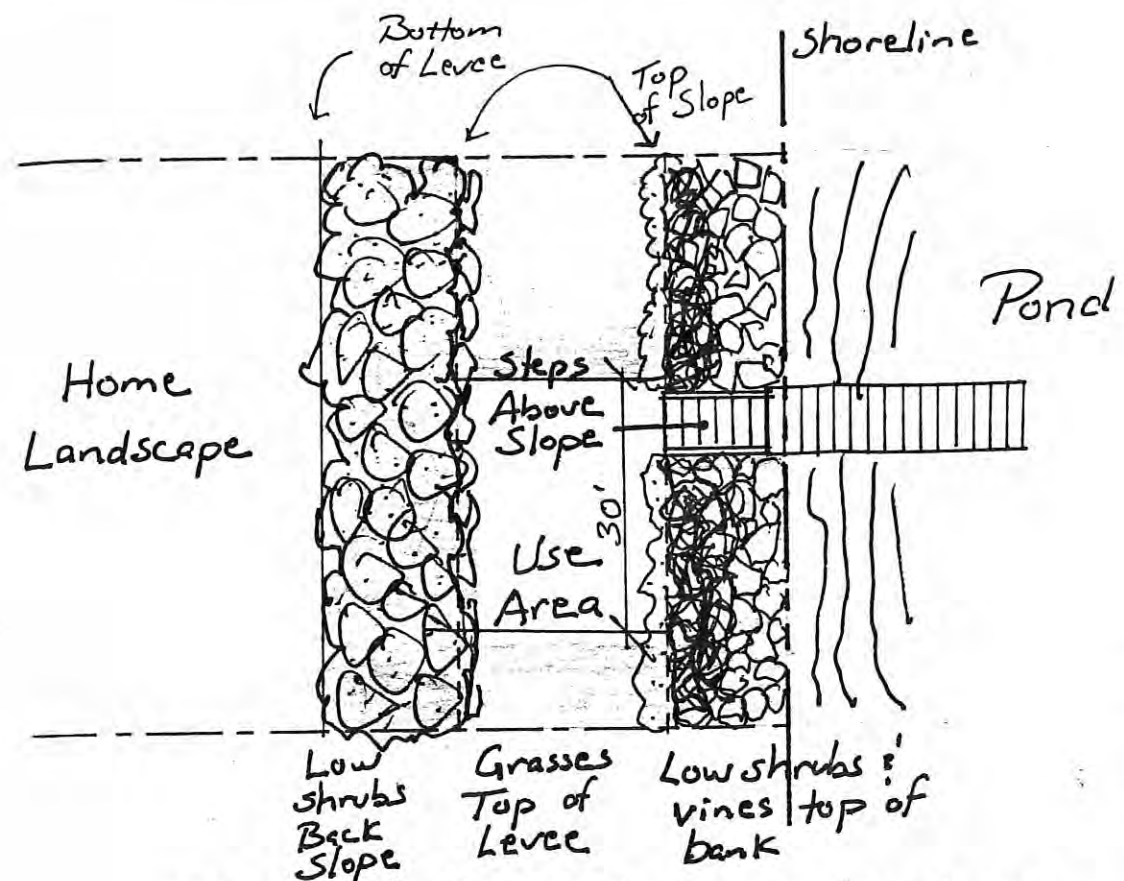 Bottom
of Levee
Top
of Slope
Shoreline
Pond
Home
Landscape
Steps
Above
Slope
30'
Use
Area
Low
shrubs
Back
Slope
Grasses
Top of
Levee
Low shrubs &
vines top of
bank